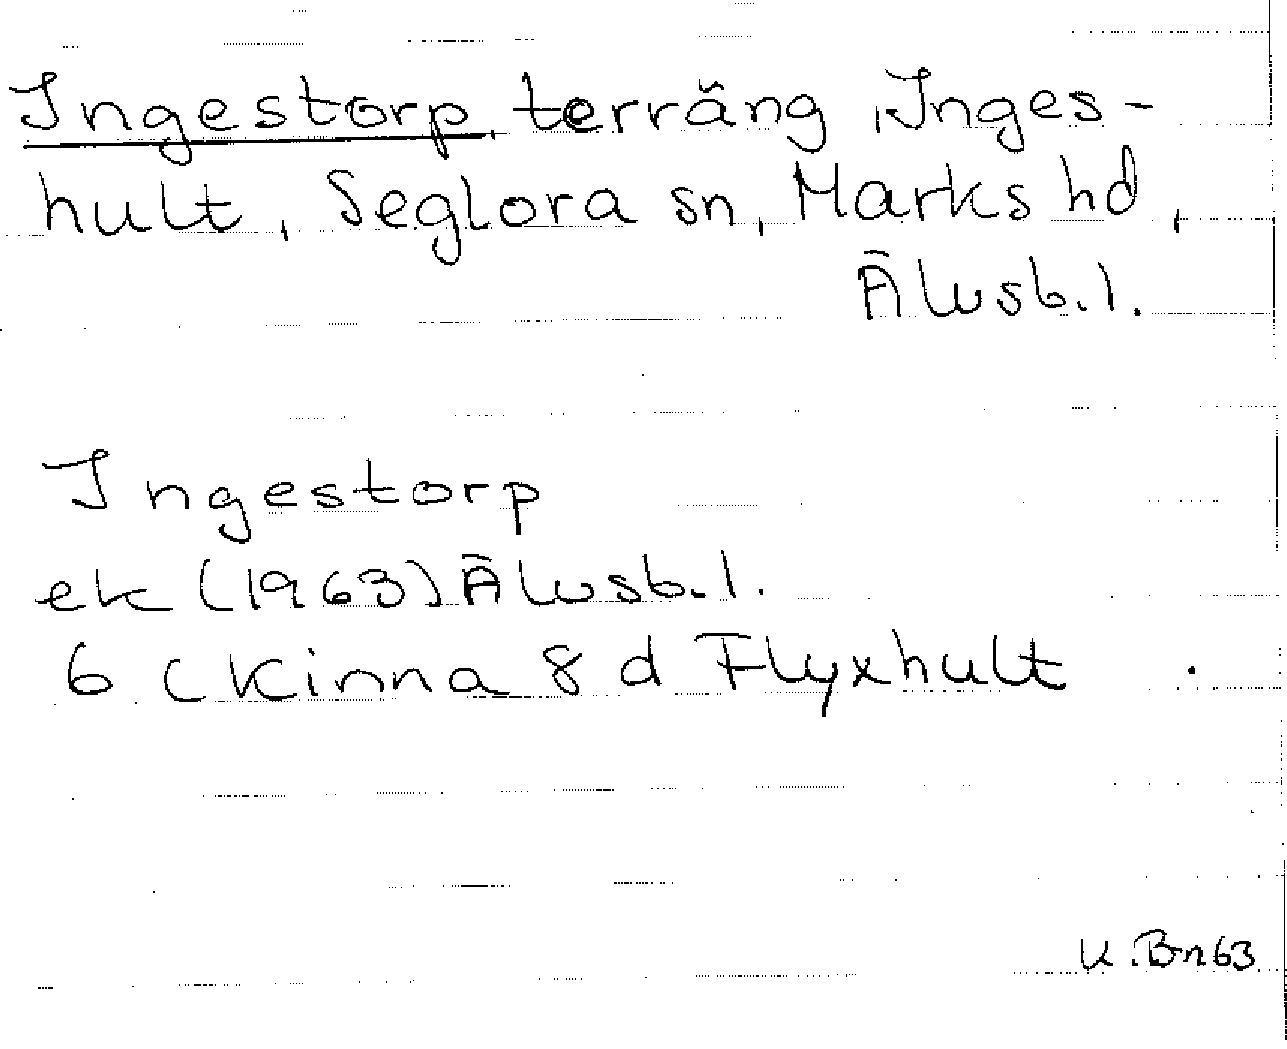 Ingestorp, terräng, Inges-
hult, Seglora sn, Marks hd,
Älvsb.l.
Ingestorp
ek (1963) Älvsb.l.
6 C Kinna 8 d Flyxhult
U.Bn63